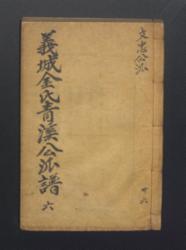 文忠公派
義城金氏青溪公派譜
六